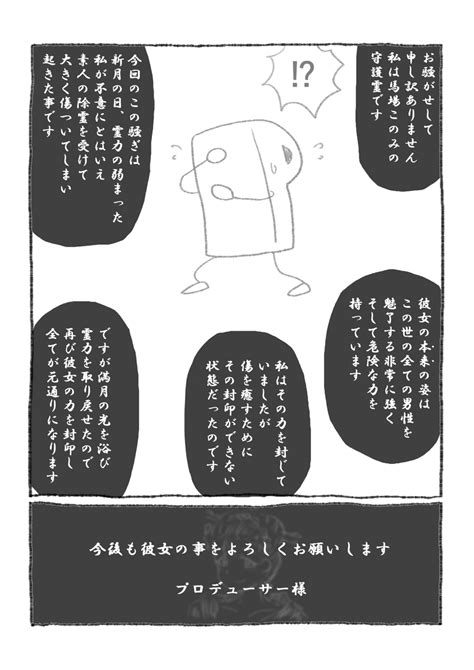 お騒がせして
申し訳ありません
私は馬場このみの
守護霊です
!?
今回のこの騒ぎは
新月の日、霊力の弱まった
私が不意にとはいえ
素人の除霊を受けて
大きく傷ついてしまい
起きた事です
彼女の本来の姿は
この世の全ての男性を
魅了する非常に強く
そして危険な力を
持っています
私はその力を封じて
いましたが
傷を癒すために
その封印ができない
状態だったのです
ですが満月の光を浴び
霊力を取り戻せたので
再び彼女の力を封印し
全てが元通りになります
今後も彼女の事をよろしくお願いします
プロデューサー様